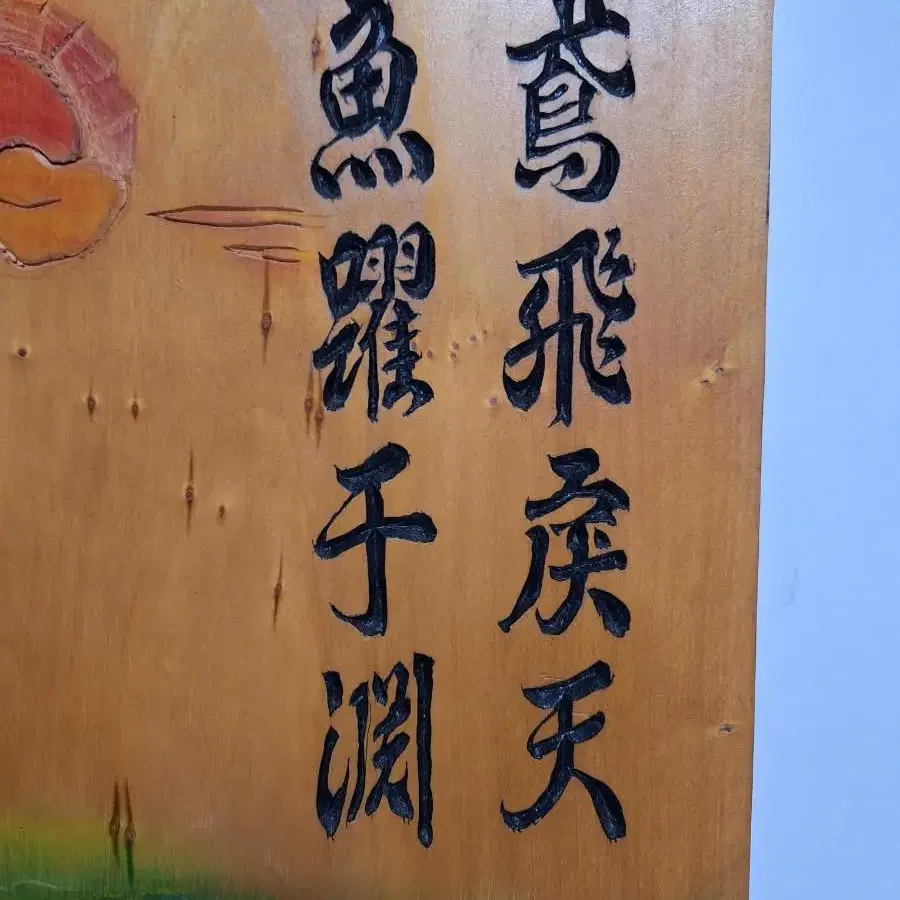 鳶飛戾天
魚躍于淵